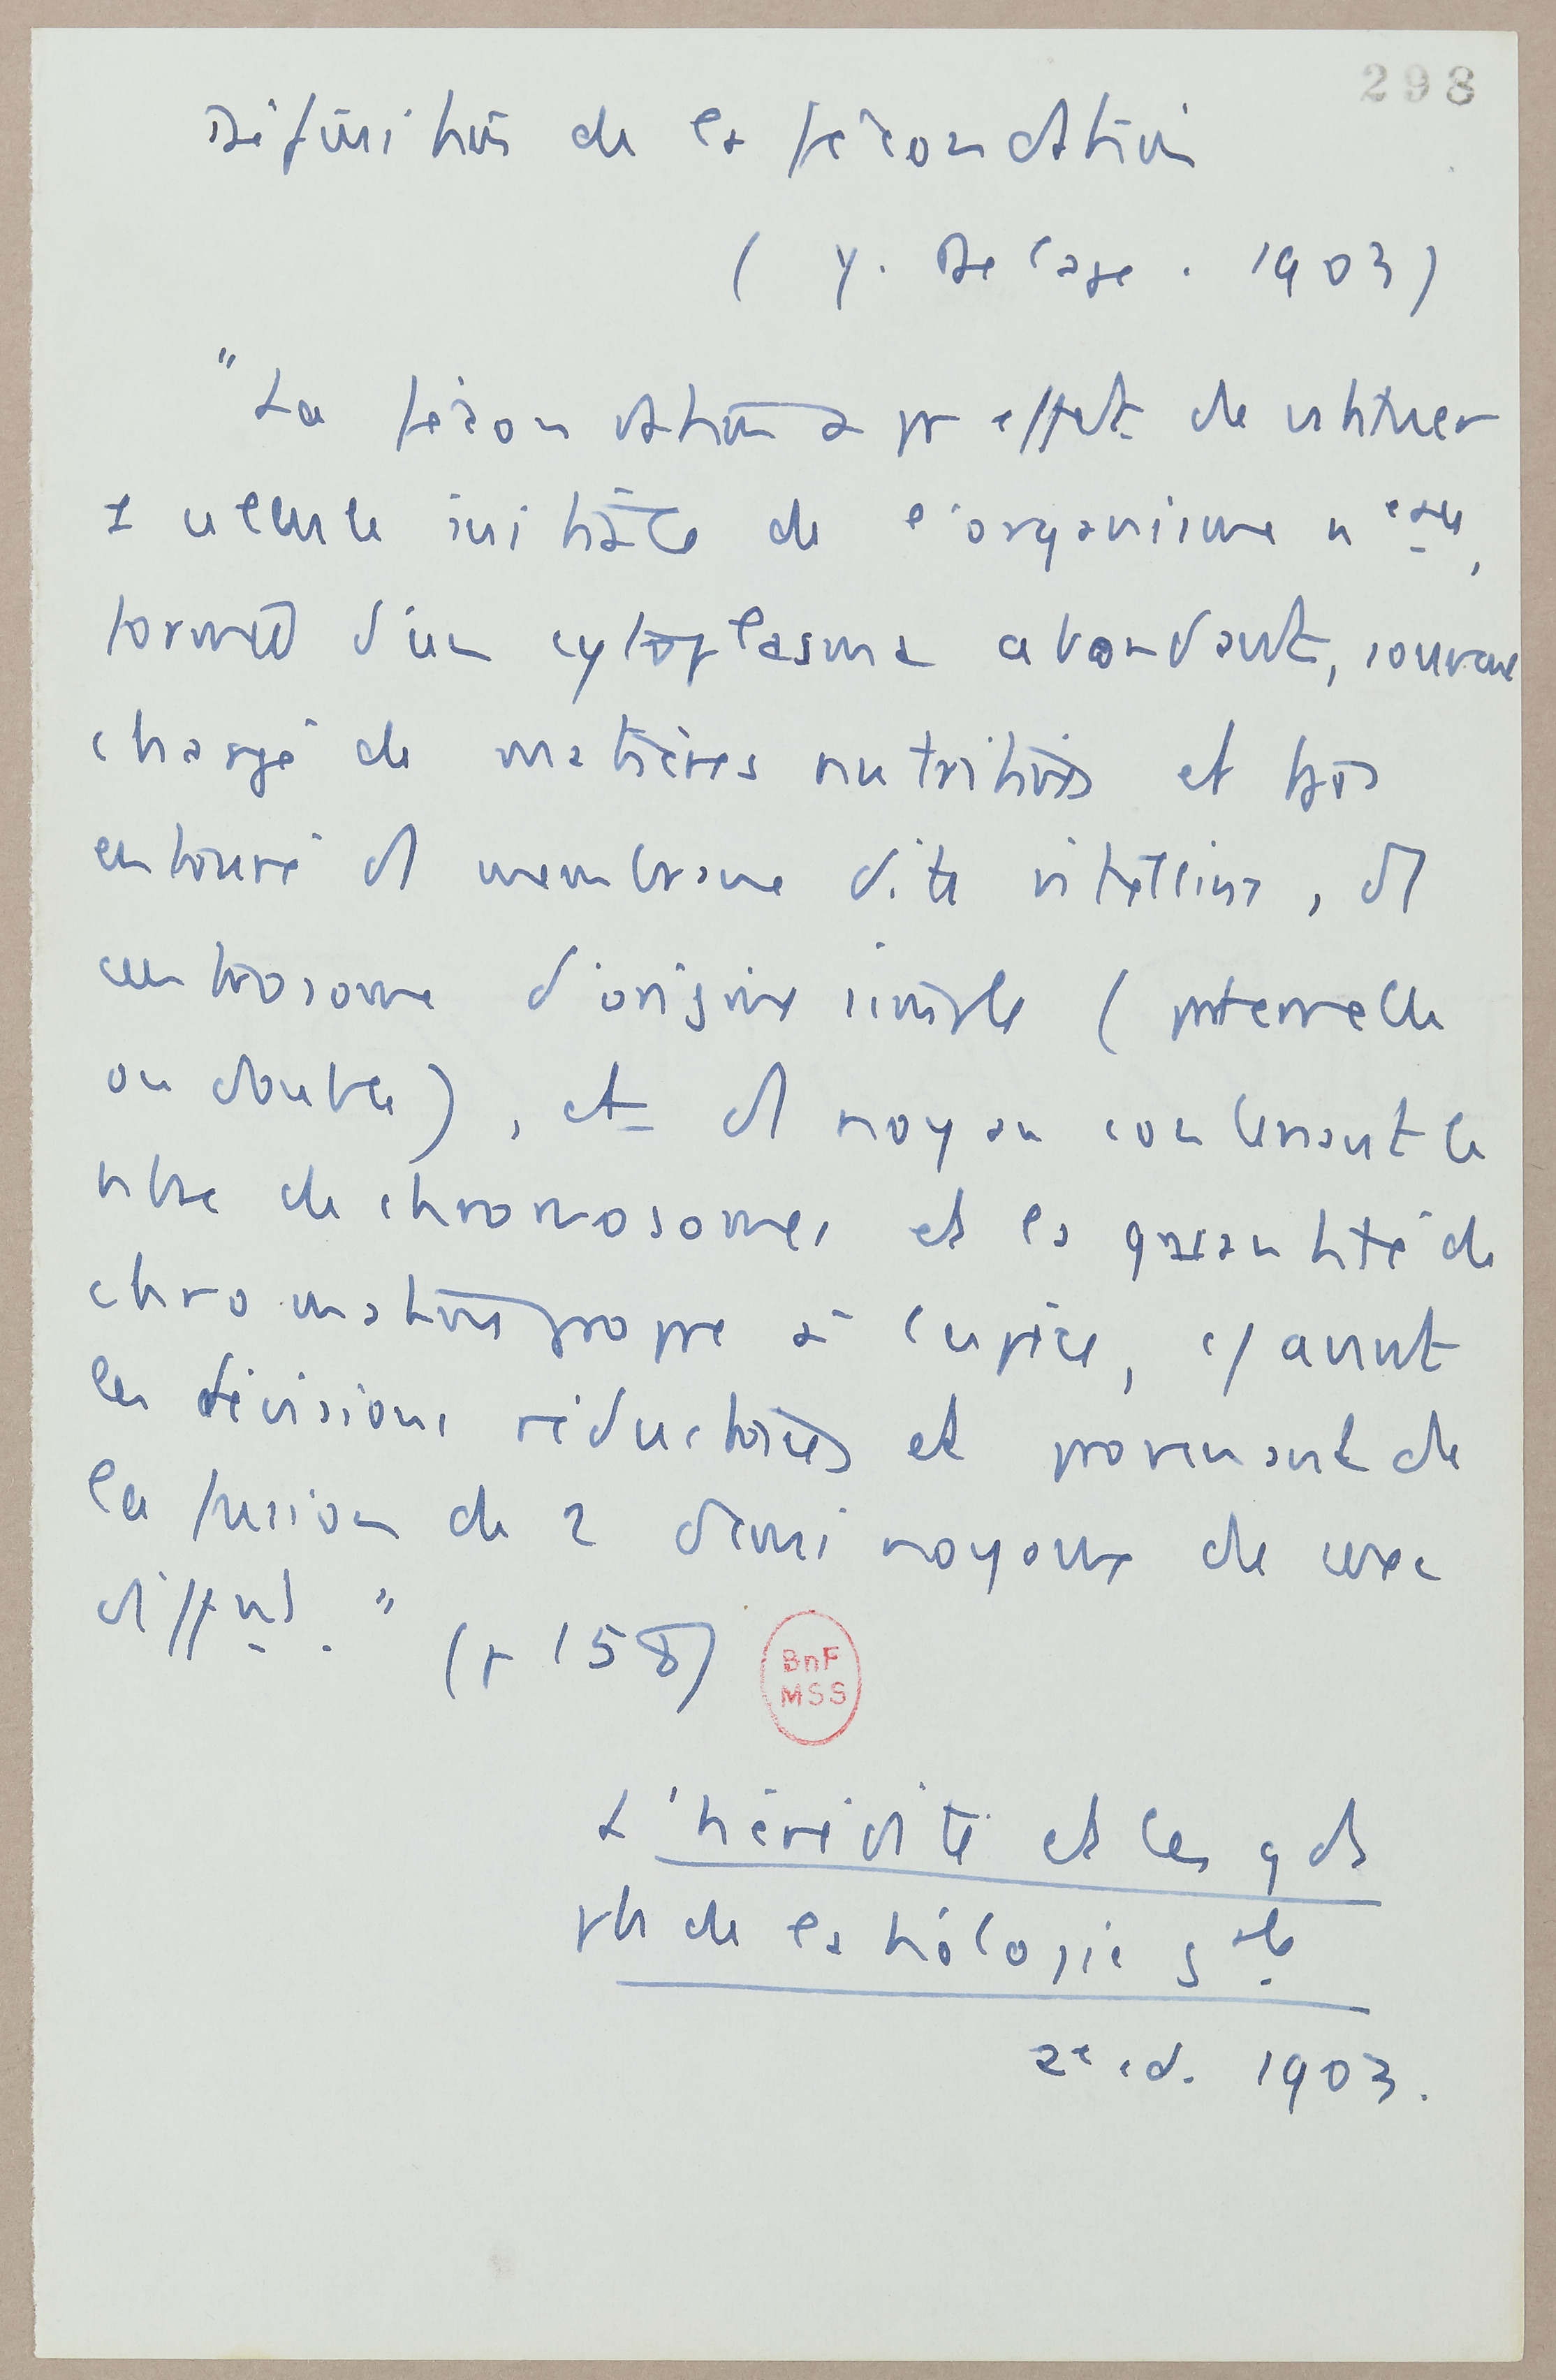 298
Définition de la fécondation
( Y. Delage . 1903)
"La fécondation a pr effet de
1 cellule initiale de l'organisme n eau,
formée d'un cytoplasma abondant, souvent
chargé de matières nutritives et
entouré d'1 membrane dite vitelline, d'1
centrosome d'origine simple ( paternelle
ou double), et d'1 noyau contenant le
nbre de chromosomes et la quantité de
chromatine propre à l'espèce, avant
les divisions réductrices et provenant de
la fusion de 2 demi noyaux de sexe
diffnt. " (p 158)
BnF
MSS
L'hérédité et les gds
pb de la biologie g ale
2e ed. 1903.